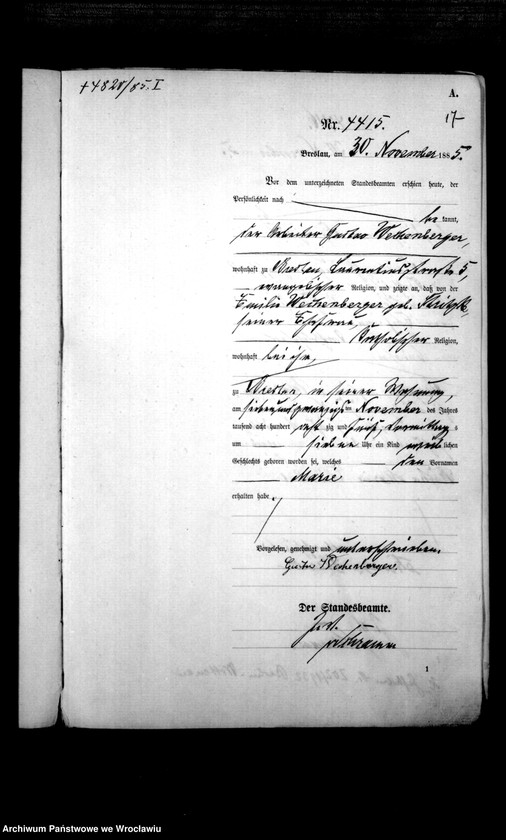 +4820/85. I
A.
17
Nr. 4415.
Breslau, am 30. November 1885.
Vor dem unterzeichneten Standesbeamten erschien heute, der
Persönlichkeit nach
be kannt,
der Arbeiter Gustav Wechenberger,
wohnhaft zu Breslau, Laurentiusstraße 5,
evangelischer Religion, und zeigte an, daß von der
Emilie Wechenberger geb.
seiner Ehefrau,
katholischer Religion,
wohnhaft bei ihm,
zu Breslau, in seiner Wohnung,
am siebenundzwanzigsten November des Jahres
tausend acht hundert acht zig und fünf, Vormittag s
um sieben Uhr ein Kind weib lichen
Geschlechts geboren worden sei, welches den Vornamen
Marie
erhalten habe.
Vorgelesen, genehmigt und unterschrieben.
Gustav Wechenberger.
Der Standesbeamte.
1
Archiwum Państwowe we Wrocławiu